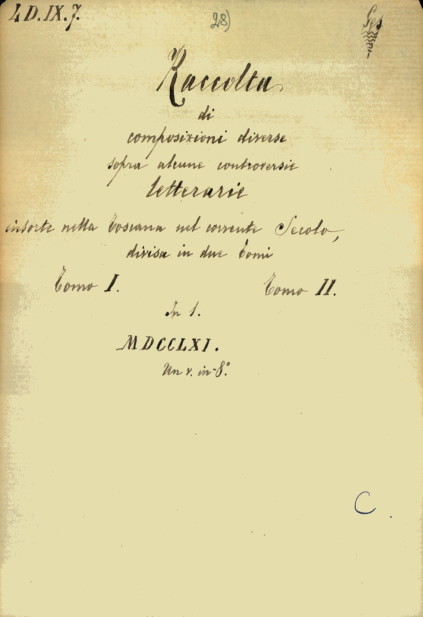 4 D. IX. 7.
28)
Ges
Raccolta
di
composizioni diverse
sopra alcune controversie
letterarie
insorte nella Toscana nel corrente Secolo,
divisa in due Tomi
Tomo I. Tomo II.
In 1.
MDCCLXI.
Un v. in-8°
C